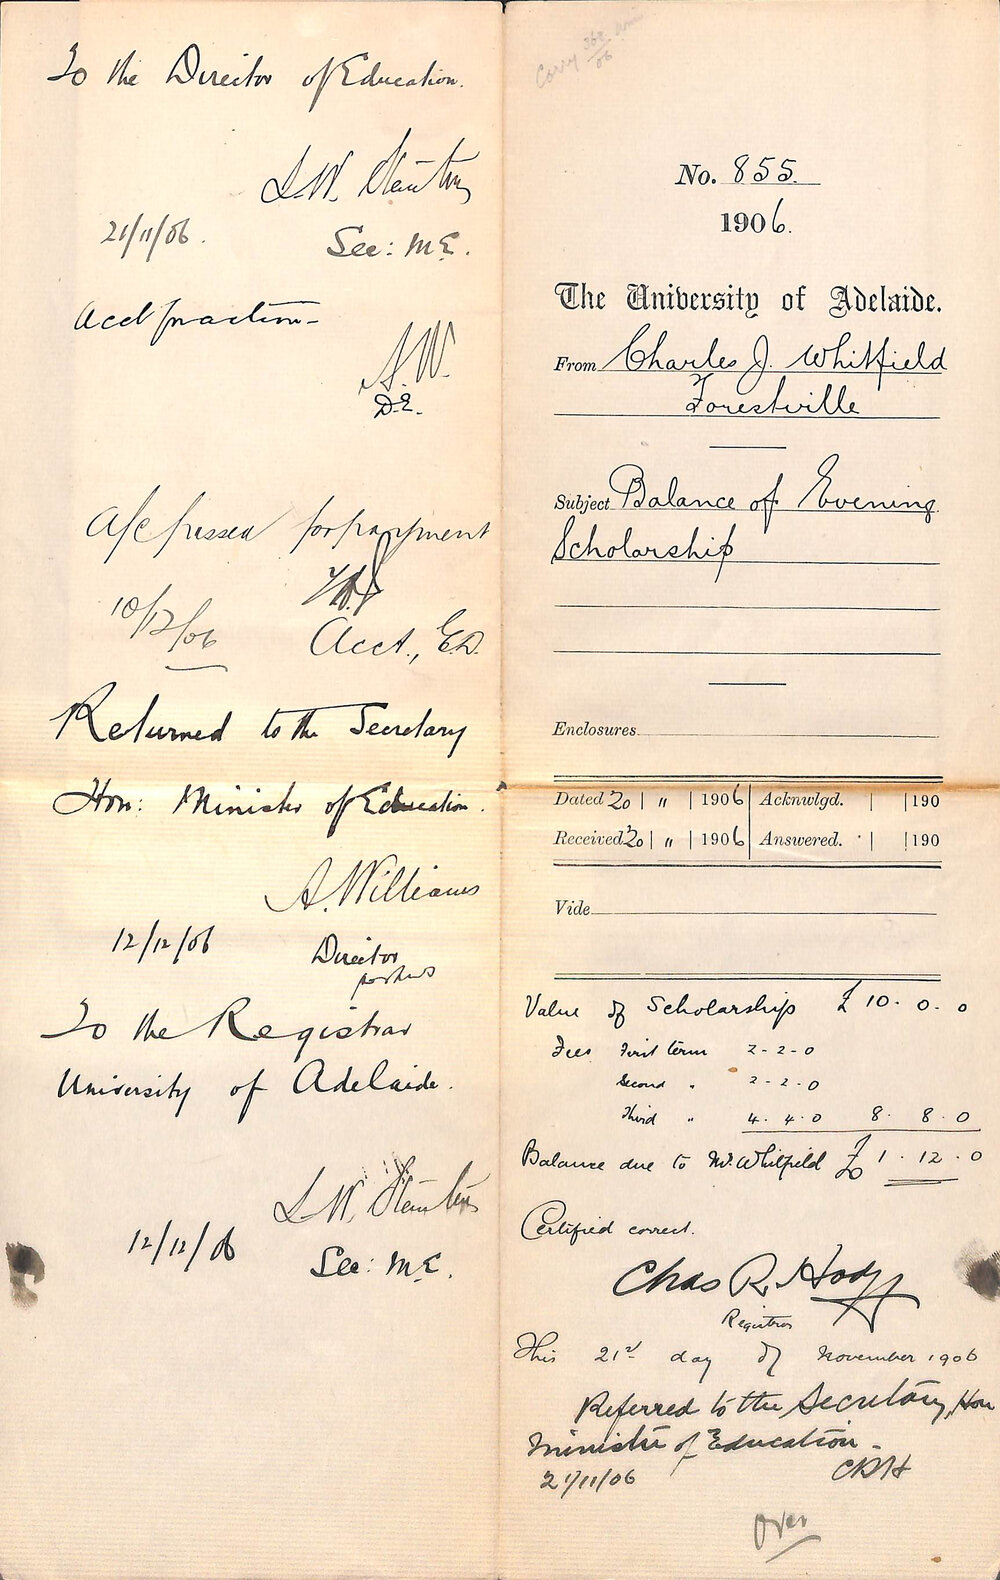 To the Director of Education.
L.W. Stanton
21/11/06.
Sec: M.E.
Acct for action
A.W.
D.E.
A/c passed for payment
10/12/06
Acct., E.D.
Returned to the Secretary
Hon: Minister of Education.
A. Williams
12/12/06
Director
To the Registrar
University of Adelaide.
L.W. Stanton
12/12/06
Sec: M.E.
No. 855.
1906.
The University of Adelaide.
From Charles J. Whitfield
Forestville
Subject Balance of Evening
Scholarship
Enclosures
Dated 20 | 11 | 1906 | Acknwlgd. | | 190
Received 20 | 11 | 1906 | Answered. | | 190
Vide
Value of Scholarship £ 10. 0. 0
Fees First term 2-2-0
Second " 2-2-0
Third " 4. 4. 0 8. 8. 0
Balance due to Mr. Whitfield £ 1. 12. 0
Certified correct.
Chas R. Hodge
Registrar
This 21st day of November 1906
Referred to the Secretary, Hon
Minister of Education
21/11/06
CRH
over